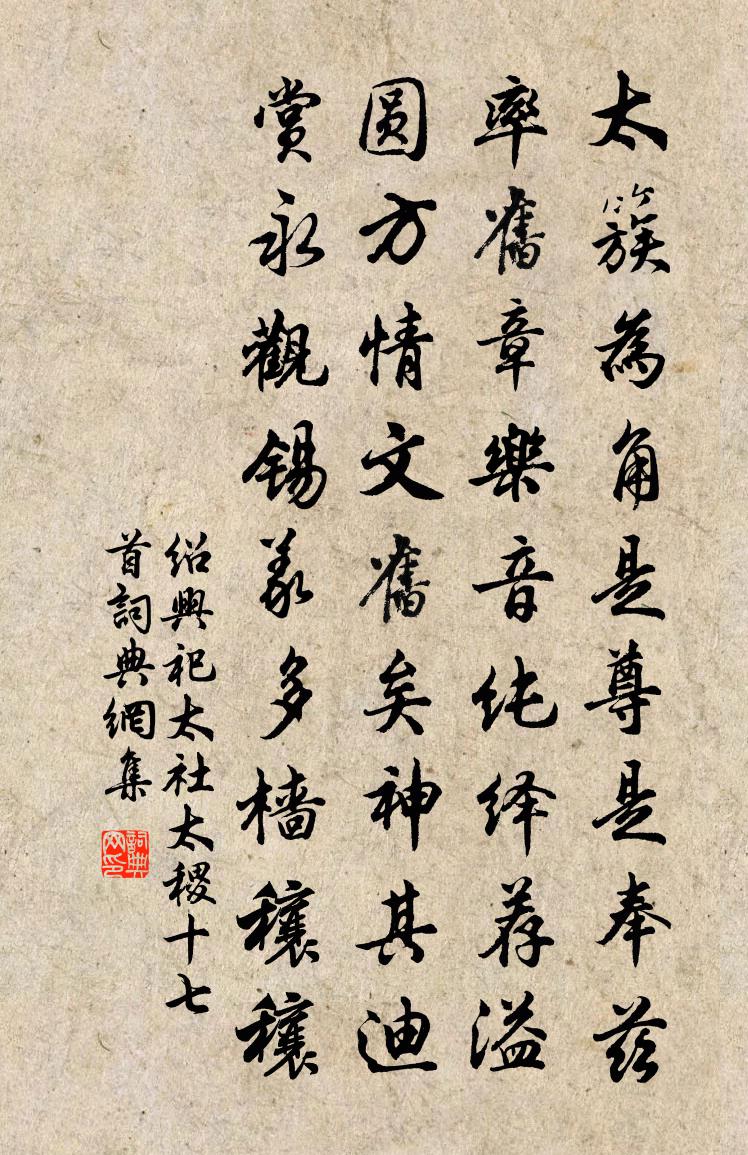 太簇為角是尊是奉兹
率舊章樂音纯绎荐溢
圆方情文舊矣神其迪
賞永觀锡羡多樯穰穰
绍興祀太社太稷十七
首詞典網集
詞典网印